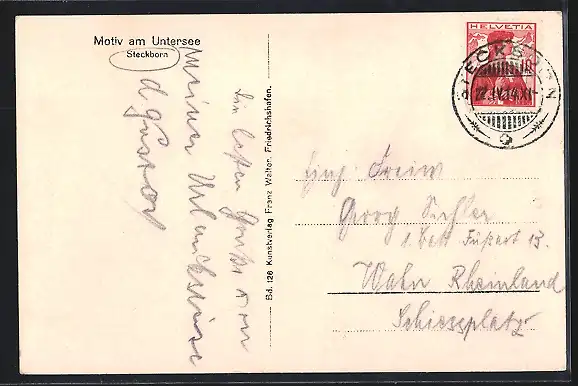 Motiv am Untersee
Steckborn
HELVETIA
STECKBORN
22.IV.14.XI
Die besten Grüße von
meiner Urlaubsreise
Bd. 126 Kunstverlag Franz Walter, Friedrichshafen.
Einj. Freiw.
Georg
1. Batt Fußart 13.
Wahn Rheinland
Schiessplatz